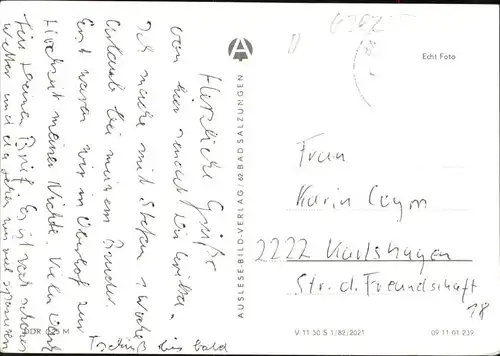 Herzliche Grüße
von hier sendet Dir
Ich mache mit Stefan 1 Woche
Urlaub bei meinem Bruder.
Erst waren wir in Oberhof zur
Hochzeit meiner Nichte. Vielen Dank
für Deinen Brief. Es ist sehr schönes
Wetter und wir gehen viel spazieren
Tschüß bis bald
DDR M
AUSLESE-BILD-VERLAG/69 BAD SALZUNGEN
Echt Foto
Frau
Karin Coym
2222 Karlshagen
Str. d. Freundschaft
18
V 11 50 S 1/82/2021
09 11 01 239